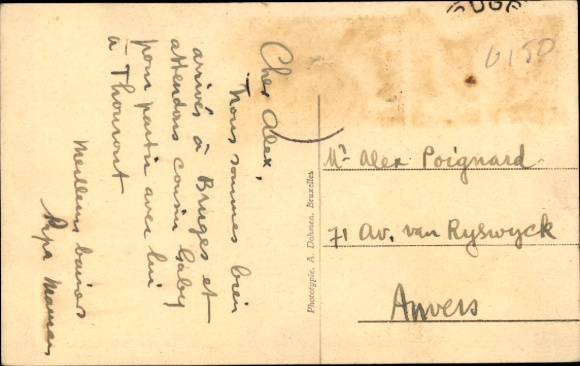 Cher Alex,
Nous sommes bien
arrivés à Bruges et
attendons cousin Gaby
pour partir avec lui
à Thourout
Meilleurs baisers
Papa Maman
Phototypie. A. Dohmen, Bruxelles
Mr Alex Poignard
71 Av. van Ryswyck
Anvers
6150